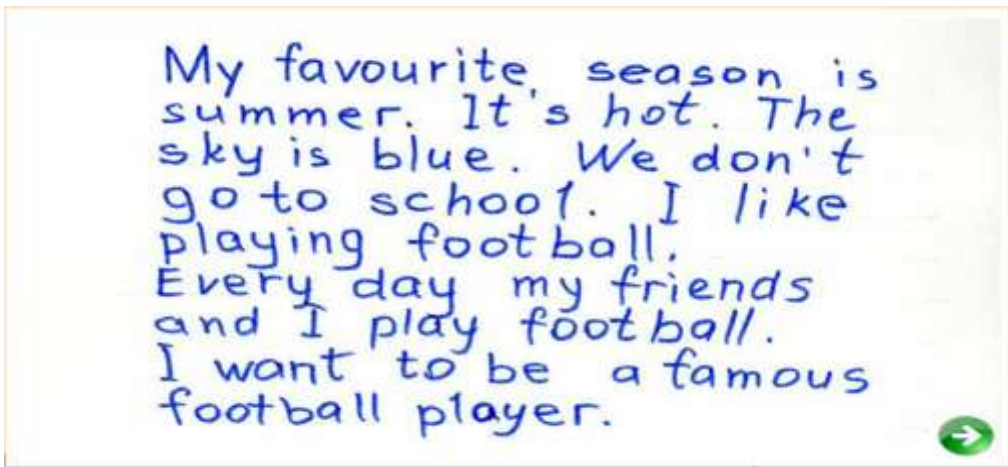 My favourite season is
summer. It's hot. The
sky is blue. We don't
go to school. I like
playing football.
Every day my friends
and I play football.
I want to be a famous
football player.